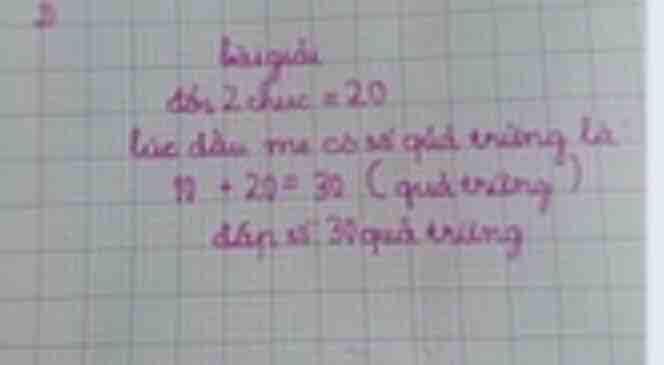 Bài giải
đổi 2 chục = 20
Lúc đầu mẹ có số quả trứng là
10 + 20 = 30 (quả trứng)
đáp số: 30 quả trứng